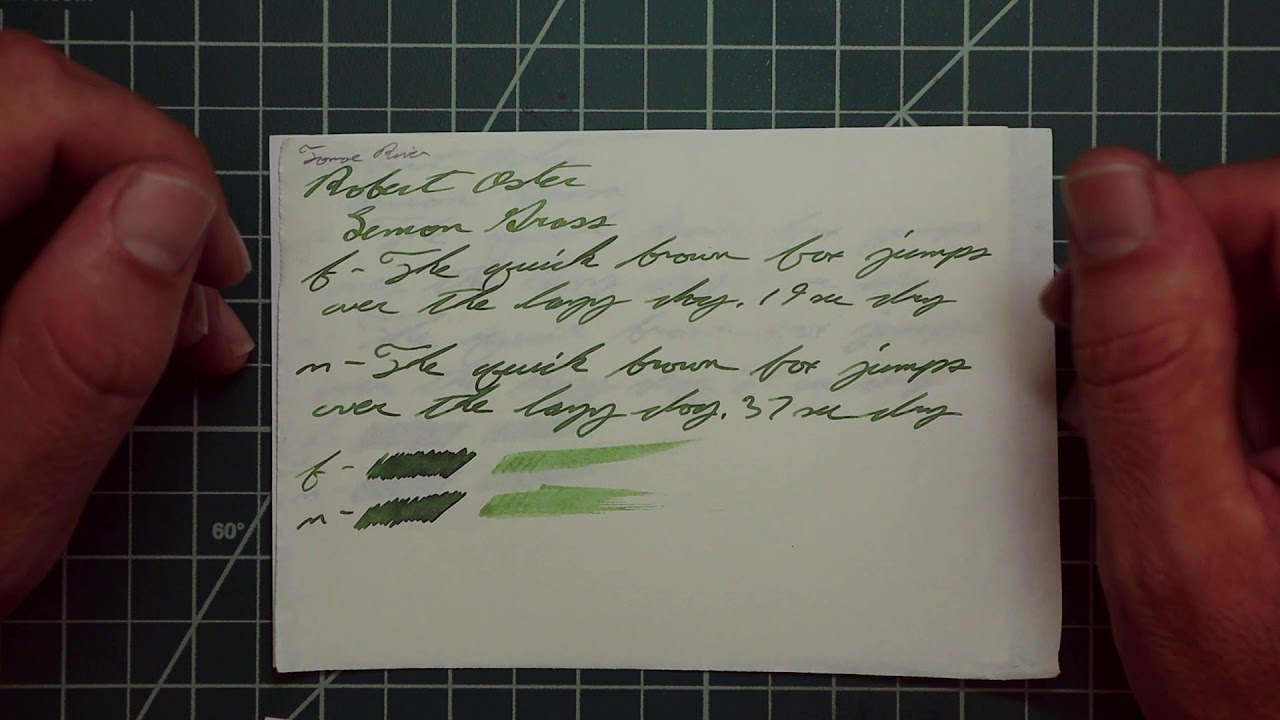 Tomoe River
Robert Oster
Lemon Grass
f - The quick brown fox jumps
over the lazy dog. 19 sec dry
m - The quick brown fox jumps
over the lazy dog. 37 sec dry
f -
m -
60°